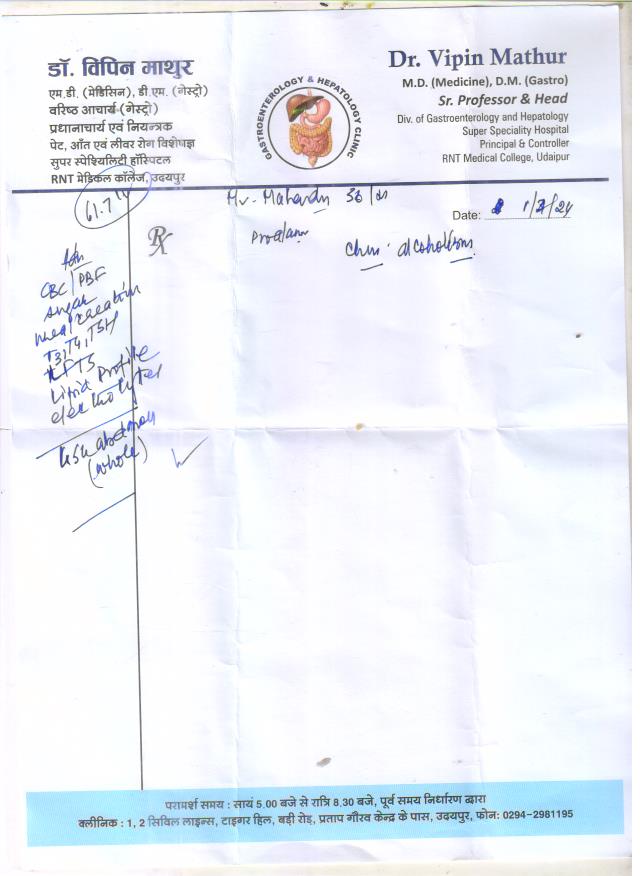 डॉ. विपिन माथुर
एम.डी. (मेडिसिन), डी.एम. (गेस्ट्रो)
वरिष्ठ आचार्य (गेस्ट्रो)
प्रधानाचार्य एवं नियन्त्रक
पेट, आँत एवं लीवर रोग विशेषज्ञ
सुपर स्पेश्यिलिटी हॉस्पिटल
RNT मेडिकल कॉलेज, उदयपुर
GASTROENTEROLOGY & HEPATOLOGY CLINIC
Dr. Vipin Mathur
M.D. (Medicine), D.M. (Gastro)
Sr. Professor & Head
Div. of Gastroenterology and Hepatology
Super Speciality Hospital
Principal & Controller
RNT Medical College, Udaipur
61.7
Mr.
Date:
Rx
alcoholism
CBC/PBF
sugar
T3, T4, TSH
LFTS
Lipid Profile
electrolytes
USG abdomen
(whole)
परामर्श समय : सायं 5.00 बजे से रात्रि 8.30 बजे, पूर्व समय निर्धारण द्वारा
क्लीनिक : 1, 2 सिविल लाइन्स, टाइगर हिल, बड़ी रोड़, प्रताप गौरव केन्द्र के पास, उदयपुर, फोन: 0294-2981195